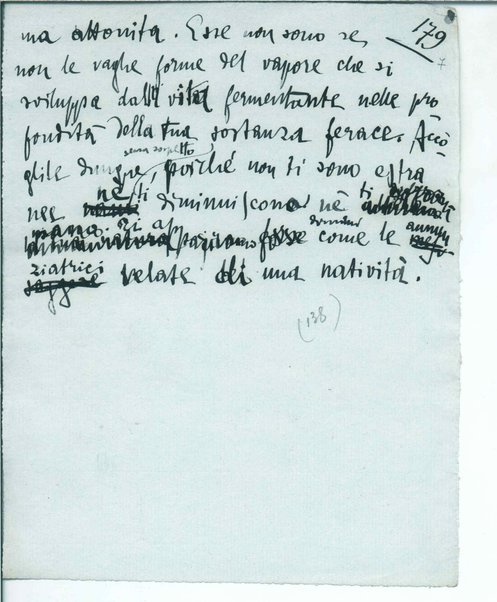 179
ma attonita. Esse non sono se
non le vaghe forme del vapore che si
sviluppa dalla vita fermentante nelle pro
fondità della tua sostanza ferace. Acco-
glile dunque, senza sospetto, poiché non ti sono estra
nee né ti diminuiscono né ti
come le annun
ziatrici velate di una natività.
(138)